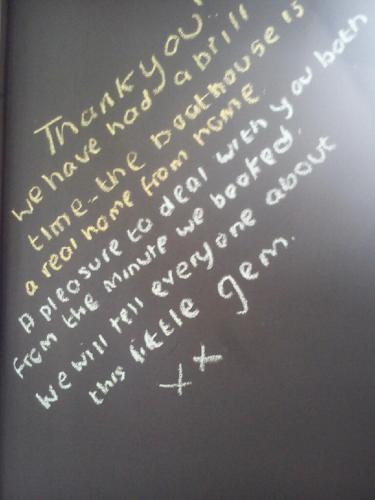 Thank you!
we have had a brill
time - the boathouse is
a real home from home
A pleasure to deal with you both
from the minute we booked.
We will tell everyone about
this little gem.
xx